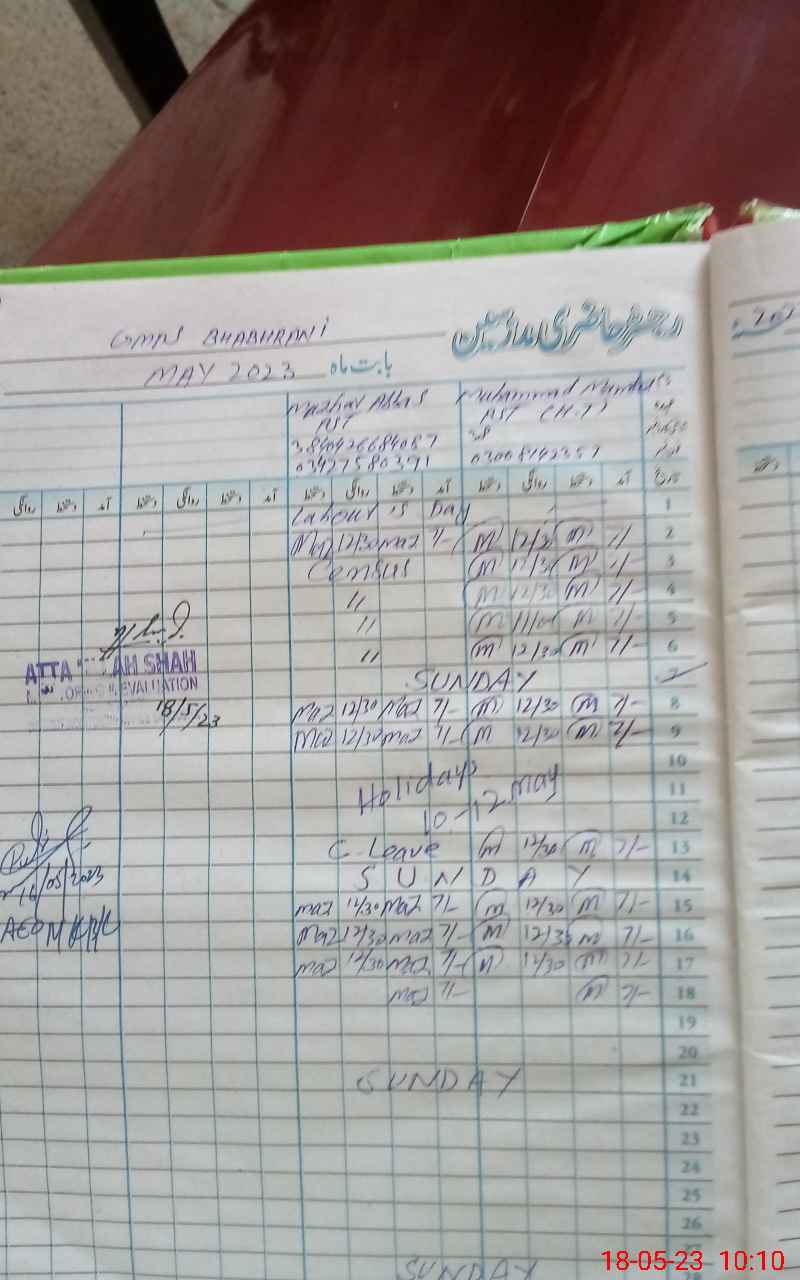 GMPS BHABHRANI
دفتر حاضری مدرسین
MAY 2023 بابت ماہ
Mazhar Abbas Muhammad
PST PST (H.T)
3840426684087
03427580371 03008142357
روانگی دستخط آمد دستخط روانگی دستخط آمد دستخط روانگی دستخط آمد دستخط روانگی دستخط آمد تاریخ
Labour is Day 1
Maz 12/30 Maz 7/- M 12/30 M 7/- 2
Census M 12/30 M 7/- 3
" M 12/30 M 7/- 4
" M 11/00 M 7/- 5
" M 12/30 M 7/- 6
SUNDAY 7
Maz 12/30 Maz 7/- M 12/30 M 7/- 8
Maz 12/30 Maz 7/- M 12/30 M 7/- 9
10
Holidays 11
10-12 May 12
C-Leave M 12/30 M 7/- 13
SUNDAY 14
Maz 12/30 Maz 7/- M 12/30 M 7/- 15
Maz 12/30 Maz 7/- M 12/30 M 7/- 16
Maz 12/30 Maz 7/- M 12/30 M 7/- 17
Maz 7/- M 7/- 18
19
20
SUNDAY 21
22
23
24
25
26
27
SUNDAY 28
ATTA AH SHAH
EVALUATION
18/5/23
16/05/2023
AEO
18-05-23 10:10